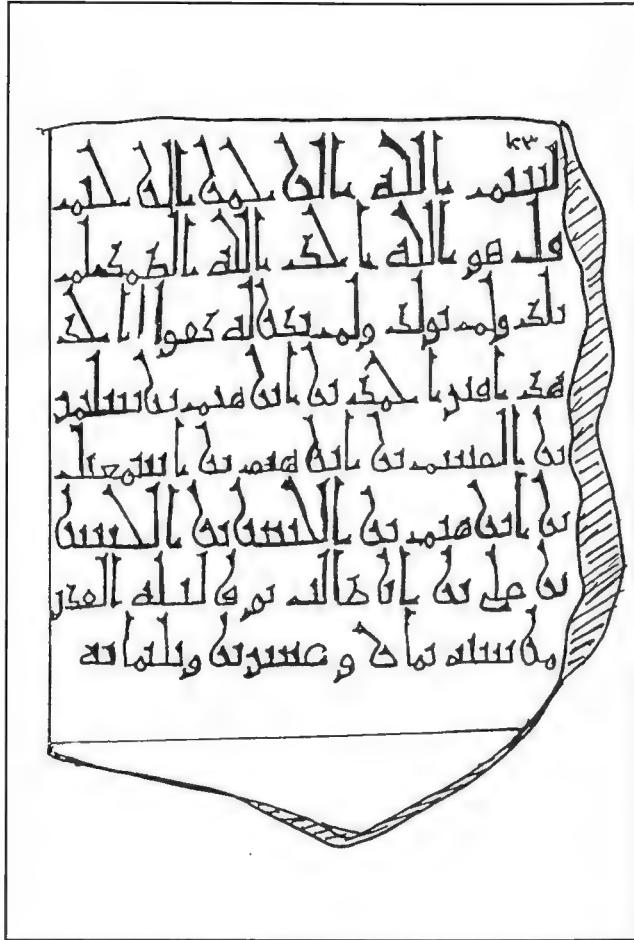 بسم الله الرحمن الرحيم
قل هو الله احد الله الصمد لم
يلد ولم يولد ولم يكن له كفوا احد
هذا قبر احمد بن ابرهيم بن
بن القسم بن ابرهيم بن اسمعيل
بن ابرهيم بن الحسن بن الحسن
بن علي بن ابي طالب توفي ليلة القدر
من سنة ثمان و عشرين وثلثمائة